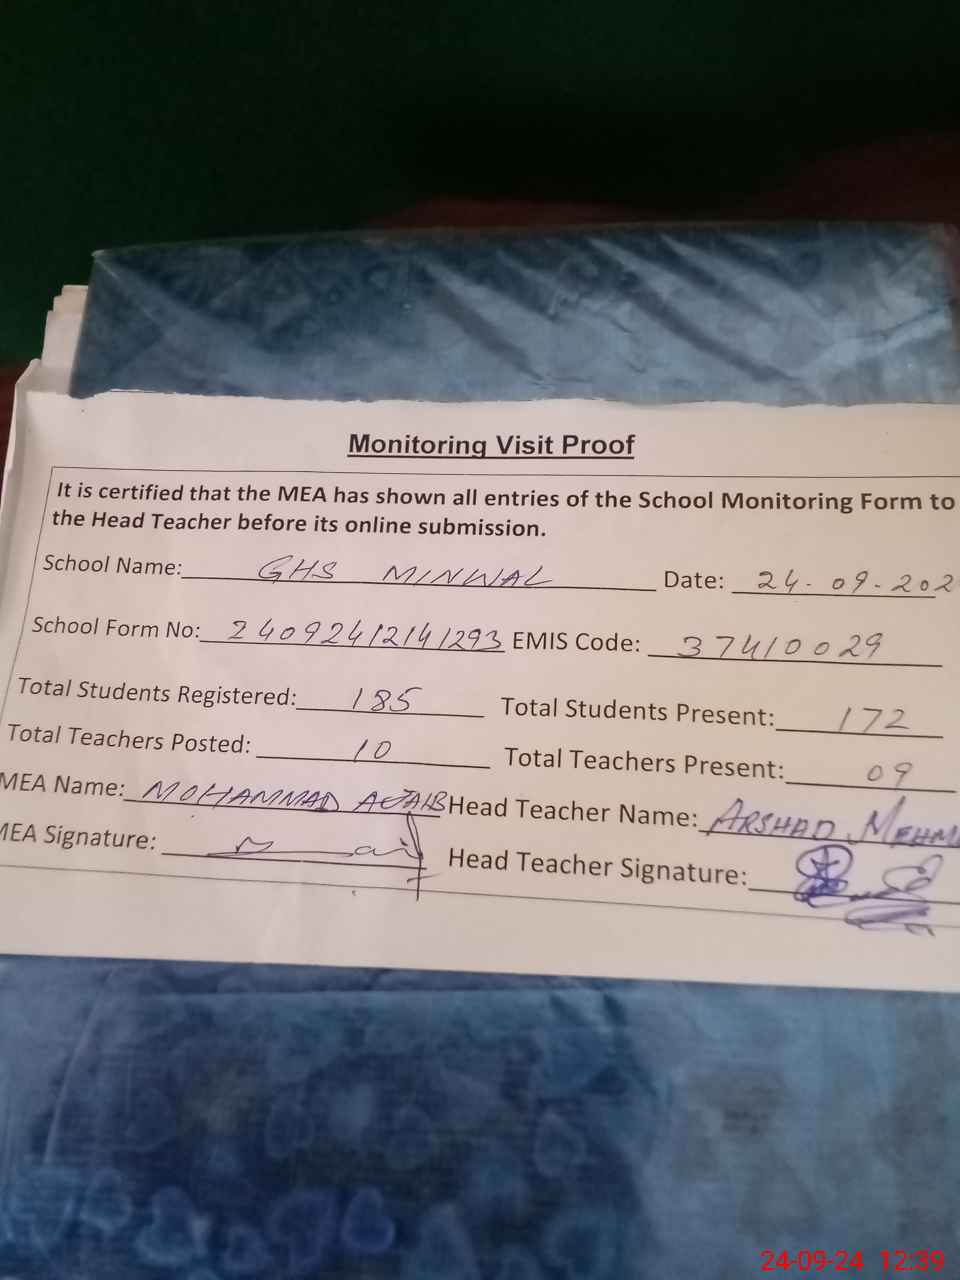 Monitoring Visit Proof
It is certified that the MEA has shown all entries of the School Monitoring Form to
the Head Teacher before its online submission.
School Name: GHS MINWAL Date: 24-09-202
School Form No: 24092412141293 EMIS Code: 37410029
Total Students Registered: 185 Total Students Present: 172
Total Teachers Posted: 10 Total Teachers Present: 09
MEA Name: MOHAMMAD Head Teacher Name: ARSHAD
MEA Signature: Head Teacher Signature:
24-09-24 12:39